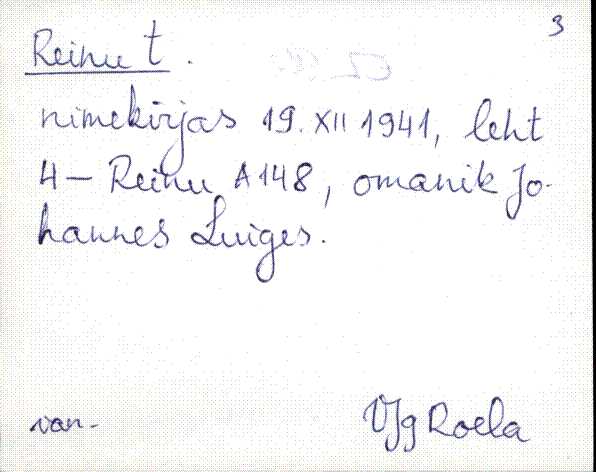 3
Reinu t.
nimekirjas 19. XII 1941, leht
4 – Reinu A 148, omanik Jo-
hannes Luiges.
van.
VJg Roela